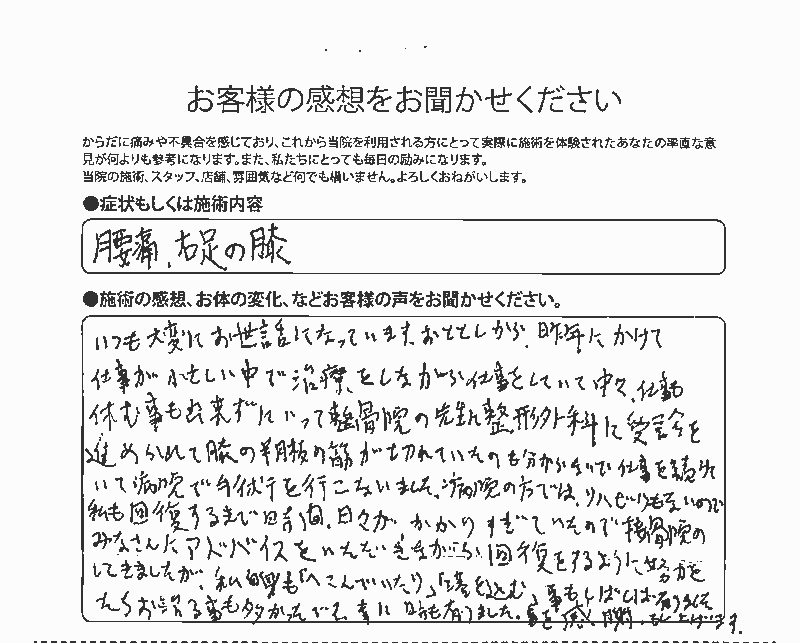 お客様の感想をお聞かせください
からだに痛みや不具合を感じており、これから当院を利用される方にとって実際に施術を体験されたあなたの率直な意
見が何よりも参考になります。また、私たちにとっても毎日の励みになります。
当院の施術、スタッフ、店舗、雰囲気など何でも構いません。よろしくおねがいします。
●症状もしくは施術内容
腰痛、右足の膝
●施術の感想、お体の変化、などお客様の声をお聞かせください。
いつも大変にお世話になっています。おととしから、昨年にかけて
仕事が忙しい中で治療をしながら仕事をしていて中々、仕事も
休む事も出来ずにいって整骨院の先生に整形外科に受診を
進められて膝の半月板の筋が切れていたのも分からないで仕事を続けて
いて病院で手術を行こないました。病院の方では、リハビリもないので
私も回復するまで時間、日々がかかりすぎていたので接骨院の
みなさんにアドバイスをいただきながら回復をするように努力を
してきましたが、私自身も「へこんでいたり」「落ち込む」事もしばしば有りました
お話する事も多かったです。